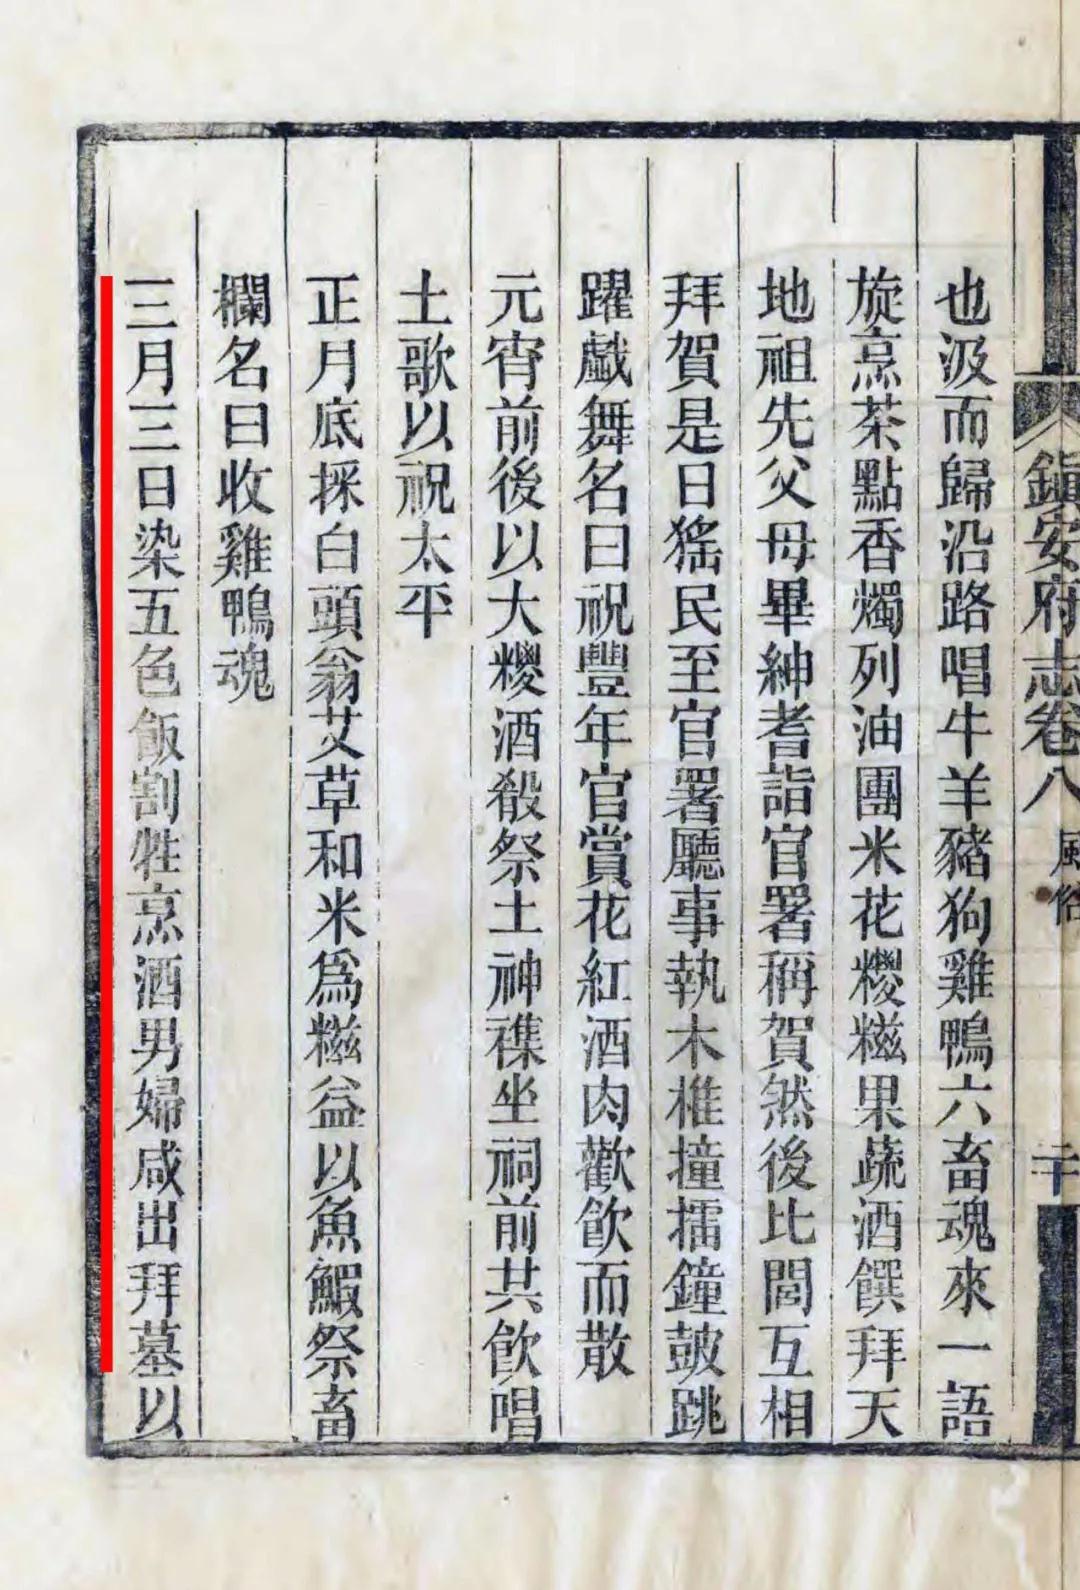 鎮安府志卷八
風俗
二十
也汲而歸沿路唱牛羊豬狗雞鴨六畜魂來一語
旋烹茶點香燭列油團米花糉糍果蔬酒饌拜天
地祖先父母畢紳耆詣官署稱賀然後比閭互相
拜賀是日猺民至官署廳事執木椎撞擂鐘皷跳
躍戱舞名曰祝豐年官賞花紅酒肉歡飲而散
元宵前後以大糉酒殽祭土神襍坐祠前共飲唱
土歌以祝太平
正月底採白頭翁艾草和米爲糍益以魚鰕祭畜
欄名曰收雞鴨魂
三月三日染五色飯割牲烹酒男婦咸出拜墓以